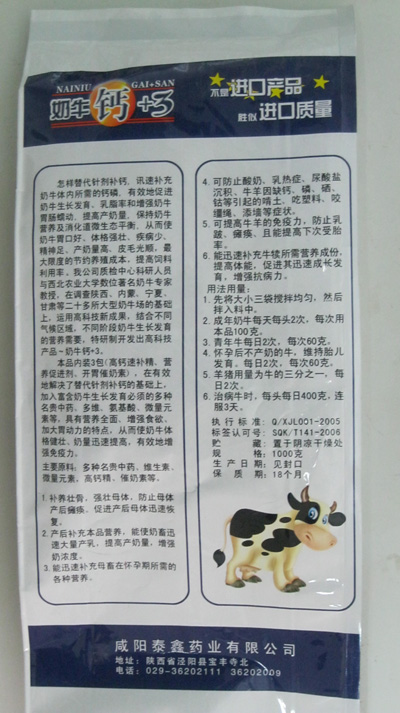 NAINIU GAI+SAN
奶牛钙+3
不是进口产品
胜似进口质量
怎样替代针剂补钙、迅速补充
奶牛体内所需的钙磷，有效地促进
奶牛生长发育、乳脂率和增强奶牛
胃肠蠕动，提高产奶量，保持奶牛
营养及消化道微生态平衡，从而使
奶牛胃口好、体格强壮、疾病少、
精神足，产奶量高、皮毛光顺，最
大限度的节约养殖成本，提高饲料
利用率。我公司质检中心科研人员
与西北农业大学数位著名奶牛专家
教授，在调查陕西、内蒙、宁夏、
甘肃等二十多所大型奶牛场的基础
上，运用高科技新成果，结合不同
气候区域，不同阶段奶牛生长发育
的营养需要，特研制开发出高科技
产品-奶牛钙+3。
本品内装3包(高钙速补精、营
养促进剂、开胃催奶素)，在有效
地解决了替代针剂补钙的基础上，
加入富含奶牛生长发育必须的多种
名贵中药、多维、氨基酸、微量元
素等，具有营养全面、增强食欲、
加大胃动力的特点，从而使奶牛体
格健壮、奶量迅速提高，有效地增
强免疫力。
主要原料：多种名贵中药、维生素、
微量元素、高钙精、催奶素等。
1.补养壮骨，强壮母体，防止母体
产后瘫痪，促进产后母体迅速恢
复。
2.产后补充本品营养，能使奶畜迅
速大量产乳，提高产奶量，增强
奶浓度。
3.能迅速补充母畜在怀孕期所需的
各种营养。
4.可防止酸奶、乳热症、尿酸盐
沉积、牛羊因缺钙、磷、硒、
钴等引起的啃土、吃塑料、咬
缰绳、添墙等症状。
5.可提高牛羊的免疫力，防止乳
跛、瘫痪、且能提高下次受胎
率。
6.能迅速补充牛犊所需营养成份，
提高体能，促进其迅速成长发
育，增强抗病力。
用法用量：
1.先将大小三袋搅拌均匀，然后
拌入料中。
2.成年奶牛每天每头2次，每次用
本品100克。
3.青年牛每日2次，每次60克。
4.怀孕后不产奶的牛，维持胎儿
发育。每日2次，每次60克。
5.羊猪用量为牛的三分之一，每
日2次。
6.治病牛时，每头每日400克，连
服3天。
执行标准：Q/XJL001-2005
标签认可号：SQK/T141-2006
贮藏：置于阴凉干燥处
规格：1000克
生产日期：见封口
保质期：18个月
咸阳泰鑫药业有限公司
地址：陕西省泾阳县宝丰寺北
电话：029-36202111 36202009